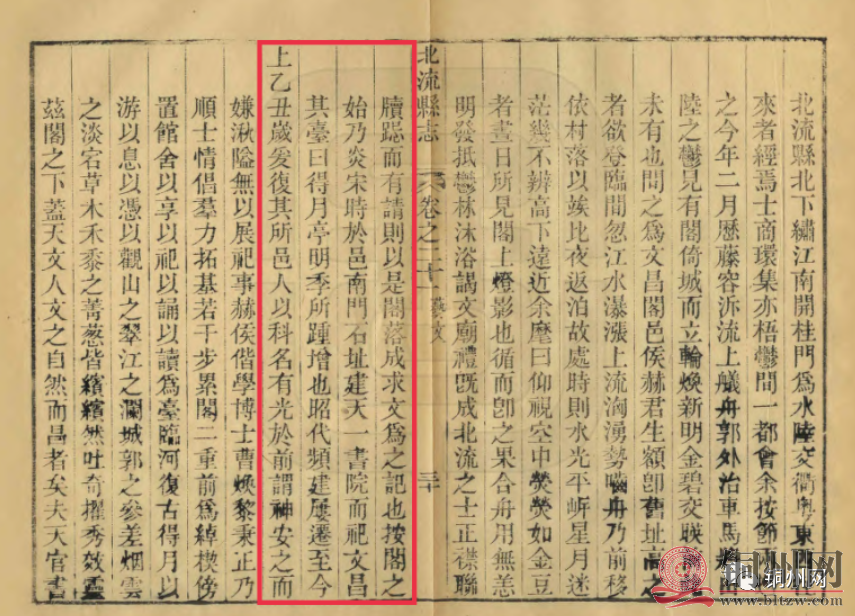 北流縣北下繡江南開桂門爲水陸交衢粤東西
來者經焉士商環集亦梧鬱間一都會余按節
之今年二月歷藤容泝流上艤舟郭外治車馬
陸之鬱見有閣倚城而立輪煥新明金碧交暎
未有也問之爲文昌閣邑侯赫君生額卽舊址高之
者欲登臨間忽江水瀑漲上流洶湧勢嚙舟乃前移
依村落以竢比夜返泊故處時則水光平㟁星月迷
茫幾不辨高下遠近余麾曰仰視空中熒熒如金豆
者晝日所見閣上燈影也循而卽之果合舟用無恙
明發抵鬱林沐浴謁文廟禮旣成北流之士正襟聯
北流縣志
卷之二十 藝文
三十
牘跽而有請則以是閣落成求文爲之記也按閣之
始乃炎宋時於邑南門石址建天一書院而祀文昌
其臺曰得月亭明季所踵增也昭代頻建屢遷至今
上乙丑歲爰復其所邑人以科名有光於前謂神安之而
嫌湫隘無以展祀事赫侯偕學博士曹煥黎秉正乃
順士情倡羣力拓基若干步累閣二重前爲綽楔傍
置館舍以享以祀以誦以讀爲臺臨河復古得月以
游以息以憑以觀山之翠江之瀾城郭之參差烟雲
之淡宕草木禾黍之菁葱皆繽繽然吐奇擢秀效靈
茲閣之下蓋天文人文之自然而昌者矣夫天官書
铜州网
www.bltzw.com
铜州网